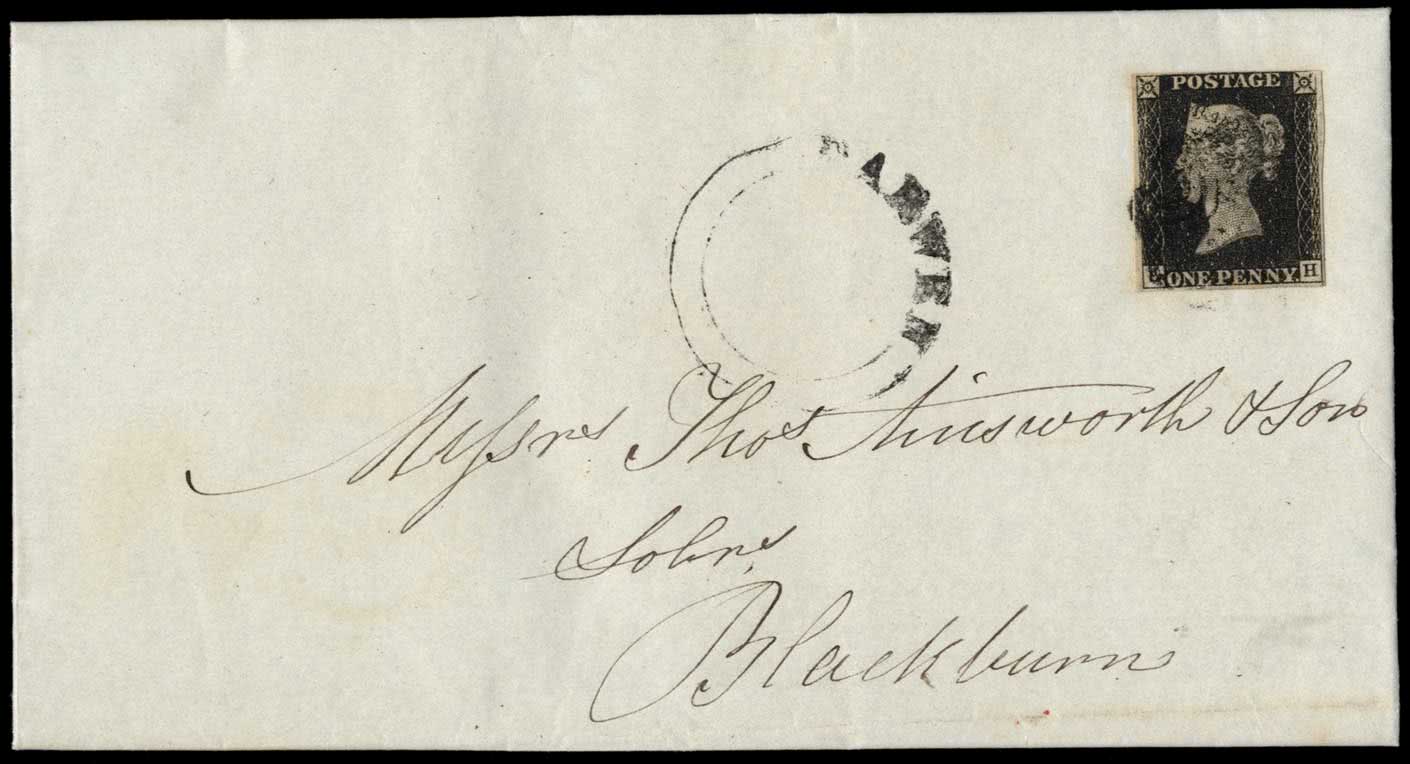 POSTAGE
ONE PENNY.
H
DARWEN
Messrs Thos Ainsworth & Son
Solrs
Blackburn